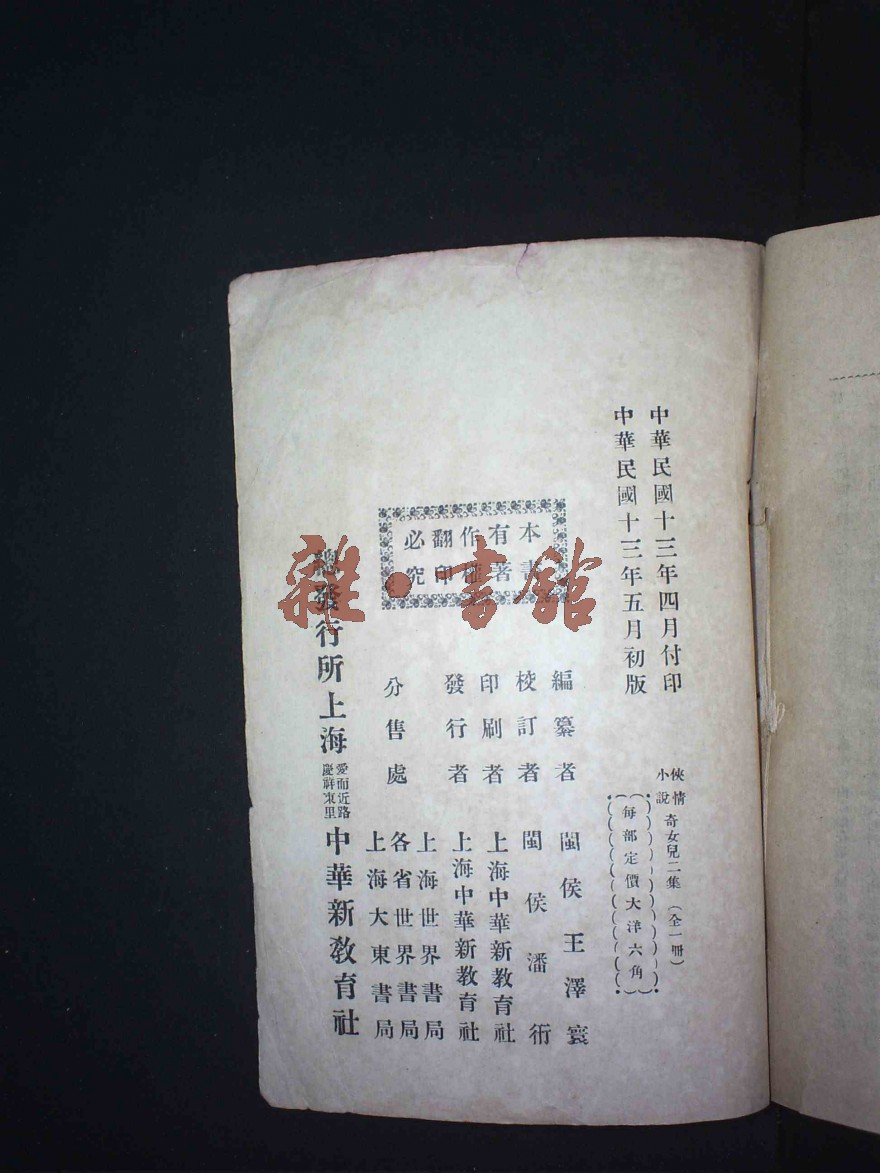 中華民國十三年四月付印
中華民國十三年五月初版
俠情小說 奇女兒二集 (全一冊)
每部定價大洋六角
本書有著作權翻印必究
編纂者 閩侯王澤寰
校訂者 閩侯潘術
印刷者 上海中華新教育社
發行者 上海中華新教育社
分售處 上海世界書局
各省世界書局
上海大東書局
總發行所上海愛而近路慶祥東里中華新教育社
雜·書館